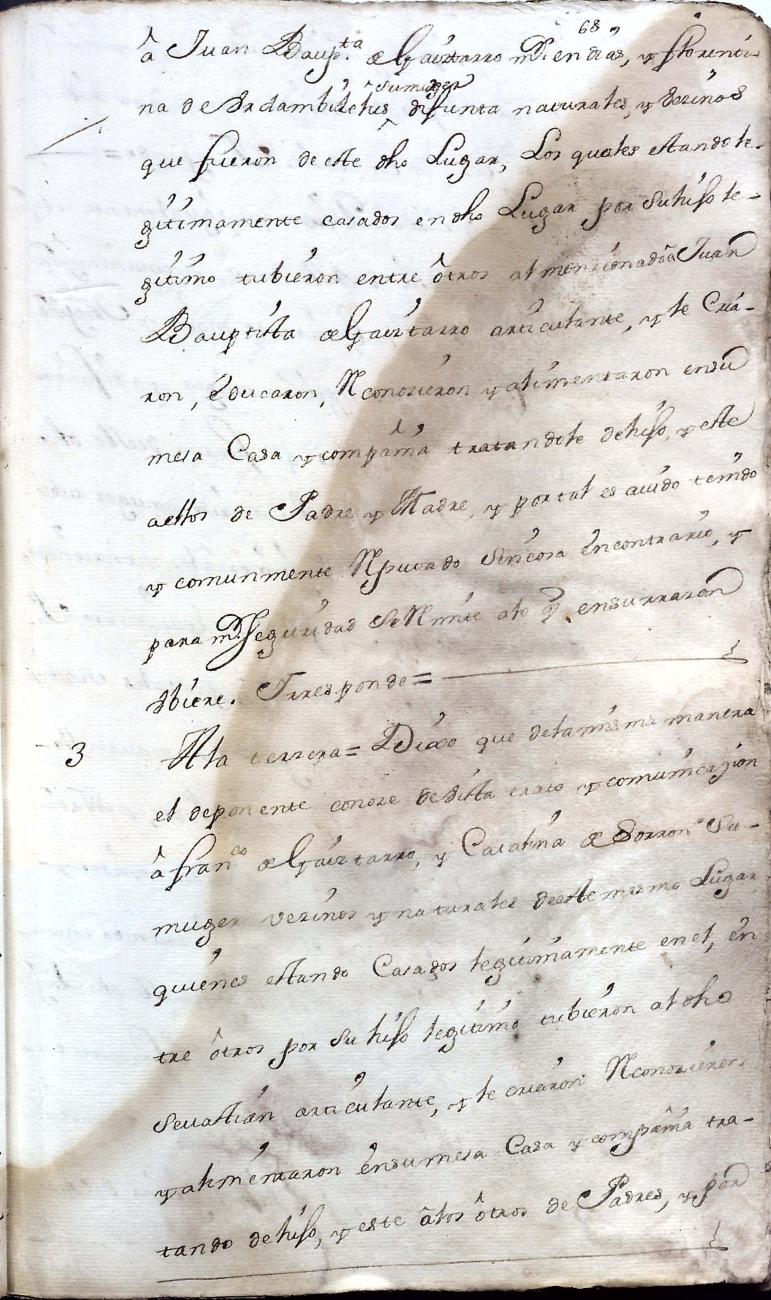 68
â Juan Baup.ta de Gaiztarro m.r en dias, y florenti-
na de Ardambide ^su muger difunta naturales, y vezinos
que fueron de este dho Lugar, Los quales estando le-
gitimamente casados en dho Lugar por su hijo le-
gitimo tubieron entre ôtros al mencionado Juan
Bauptista de Gaiztarro articulante, y le Cria-
ron, éducaron, Rconozieron y alimentaron ensu
mesa Casa y compañia tratandole de hijo, y este
aellos de Padre y Madre, y por tal es auido tenido
y comunmente Rputado sin cosa én contrario, y
para m.r Seguridad se Rmite alo q.e ensu razon
vbiere. Yrresponde =
3 Ala terzera = Dixo que dela misma manera
el deponente conoze de vista trato y comunicazion
â fran.co de Gaiztarro, y Catalina de Sorron.o Su-
muger vezinos y naturales deeste mismo Lugar
quienes estando Casados legitimamente en el, én
tre ôtros por su hijo legitimo tubieron al dho
Sevastian articulante, y le criaron Rconozieron
y alimentaron énsu mesa Casa y compañia tra-
tando de hijo, y este âlos ôtros de Padres, y por